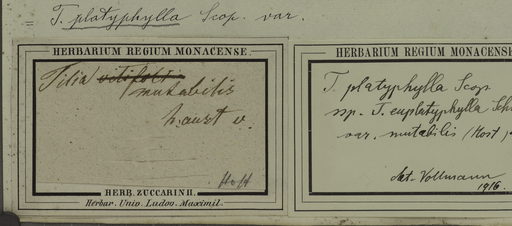 T. platyphylla Scop. var.
HERBARIUM REGIUM MONACENSE.
Tilia vitifolia
mutabilis
Host
HERB. ZUCCARINII.
Herbar. Univ. Ludov. Maximil.
HERBARIUM REGIUM MONACENS
T. platyphylla Scop
ssp. T. euplatyphylla Sch
var. mutabilis (Host)
det. Vollmann
1916.